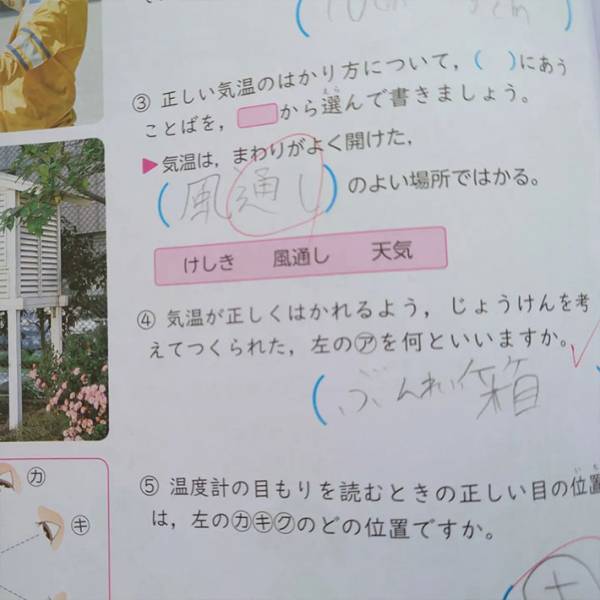 ③ 正しい気温のはかり方について，( )にあう
ことばを，　から選んで書きましょう。
えら
▶気温は，まわりがよく開けた，
(風通し)のよい場所ではかる。
けしき　風通し　天気
④ 気温が正しくはかれるよう，じょうけんを考
えてつくられた，左の㋐を何といいますか。
(
箱
⑤ 温度計の目もりを読むときの正しい目の位置
は，左の㋕㋖㋗のどの位置ですか。
㋕
㋖